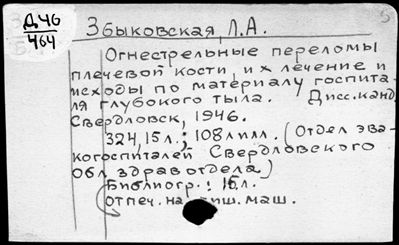 Д46
464
Збыковская, Л.А.
Огнестрельные переломы
плечевой кости, их лечение и
исходы по материалу госпита-
ля глубокого тыла. Дисс. канд.
Свердловск, 1946.
324, 15 л.; 108 л илл. (Отдел эва-
когоспиталей Свердловского
Обл здравотдела)
Библиогр.: 15 л.
отпеч. на пиш. маш.